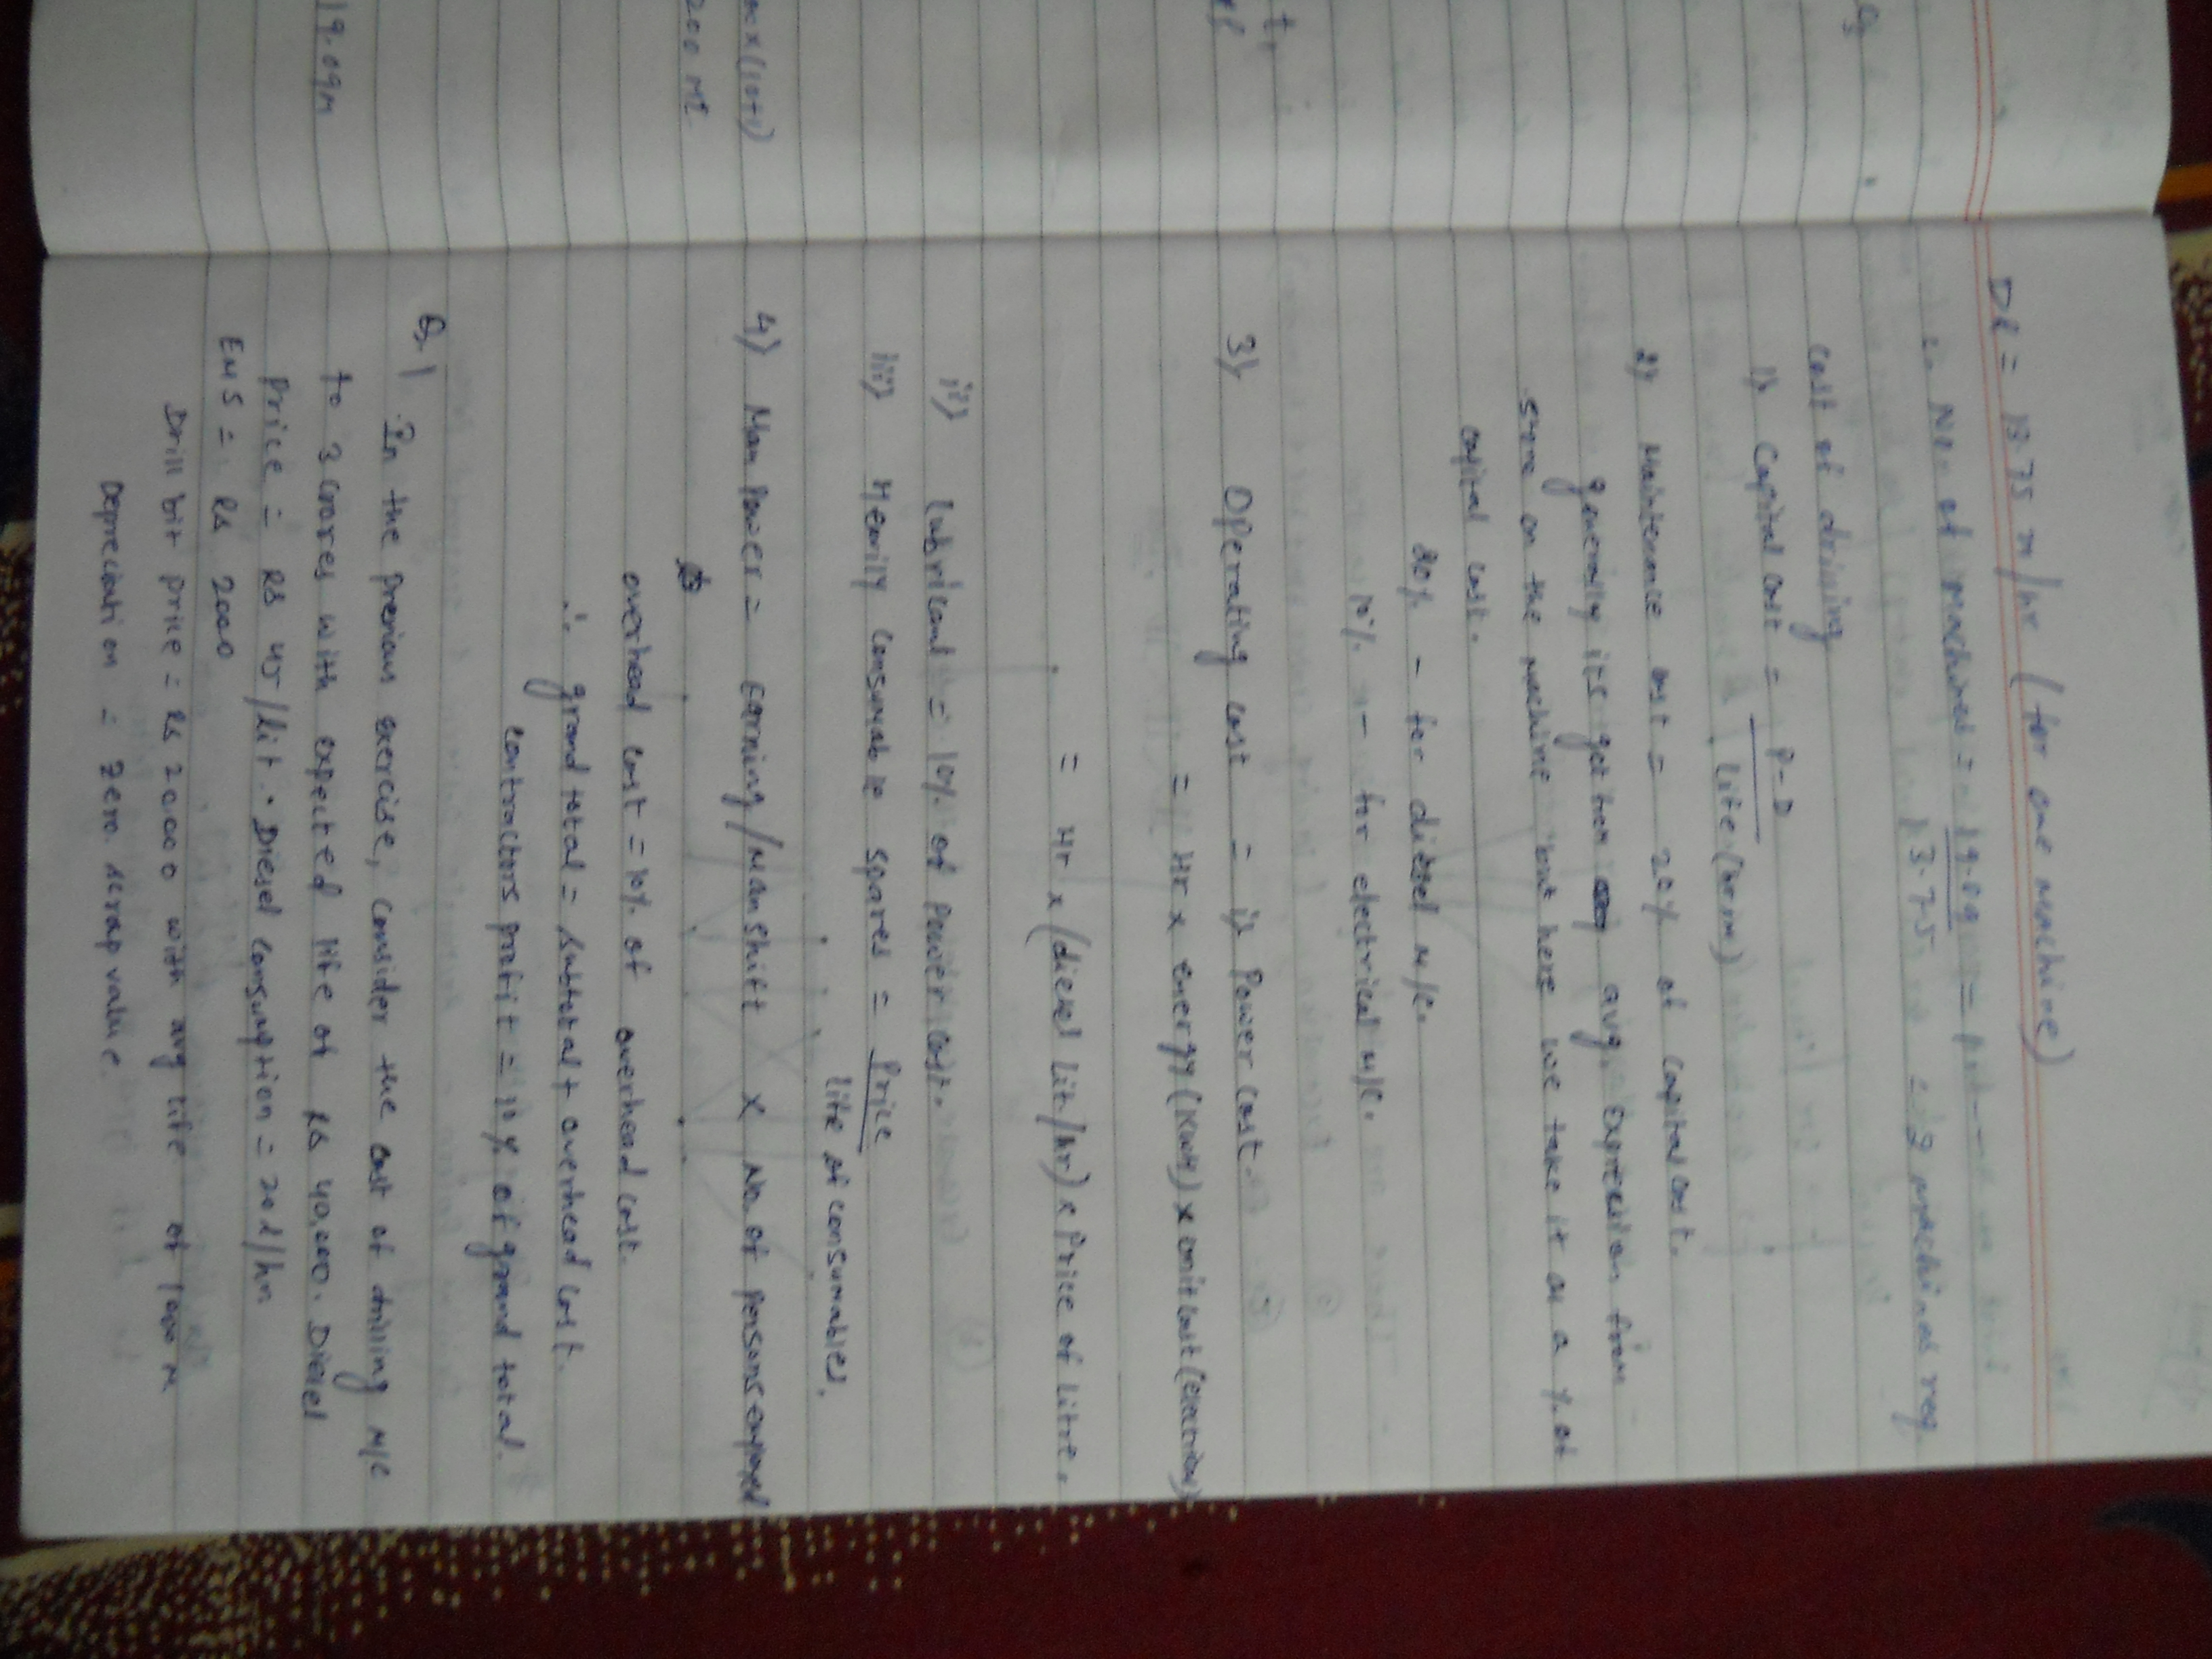 g
t,
m x (10+1)
200 m²
19.09m
Dl = 13.75 m/hr (for one machine)
∴ No. of machines = 19.09 =
13.75
= 2 machines req.
cost of drilling
1) Capital cost = P-D
life (hrs)
2) Maintenance cost = 20% of capital cost.
generally its got from avg. expression from
store on the machine but here we take it as a % of
capital cost.
20% - for diesel m/c.
10% - for electrical m/c.
3) Operating cost = i) Power cost
= Hr x energy (KWH) x unit cost (electrical)
= Hr x (diesel lit/hr) x Price of litre.
ii) Lubricant = 10% of power cost.
iii) Heavily consumable spares = Price
life of consumables.
4) Man Power = Earning/manshift x No. of persons employed
overhead cost = 10% of overhead cost.
∴ grand total = subtotal + overhead cost.
contractors profit = 10% of grand total.
Q.1 In the previous exercise, consider the cost of drilling m/c
to 3 crores with expected life of Rs 40,000. Diesel
Price = Rs 45/lit. Diesel consumption = 20 l/hr
EMS = Rs 2000
Drill bit price = Rs 20000 with avg life of 1000 m
Depreciation = zero scrap value.